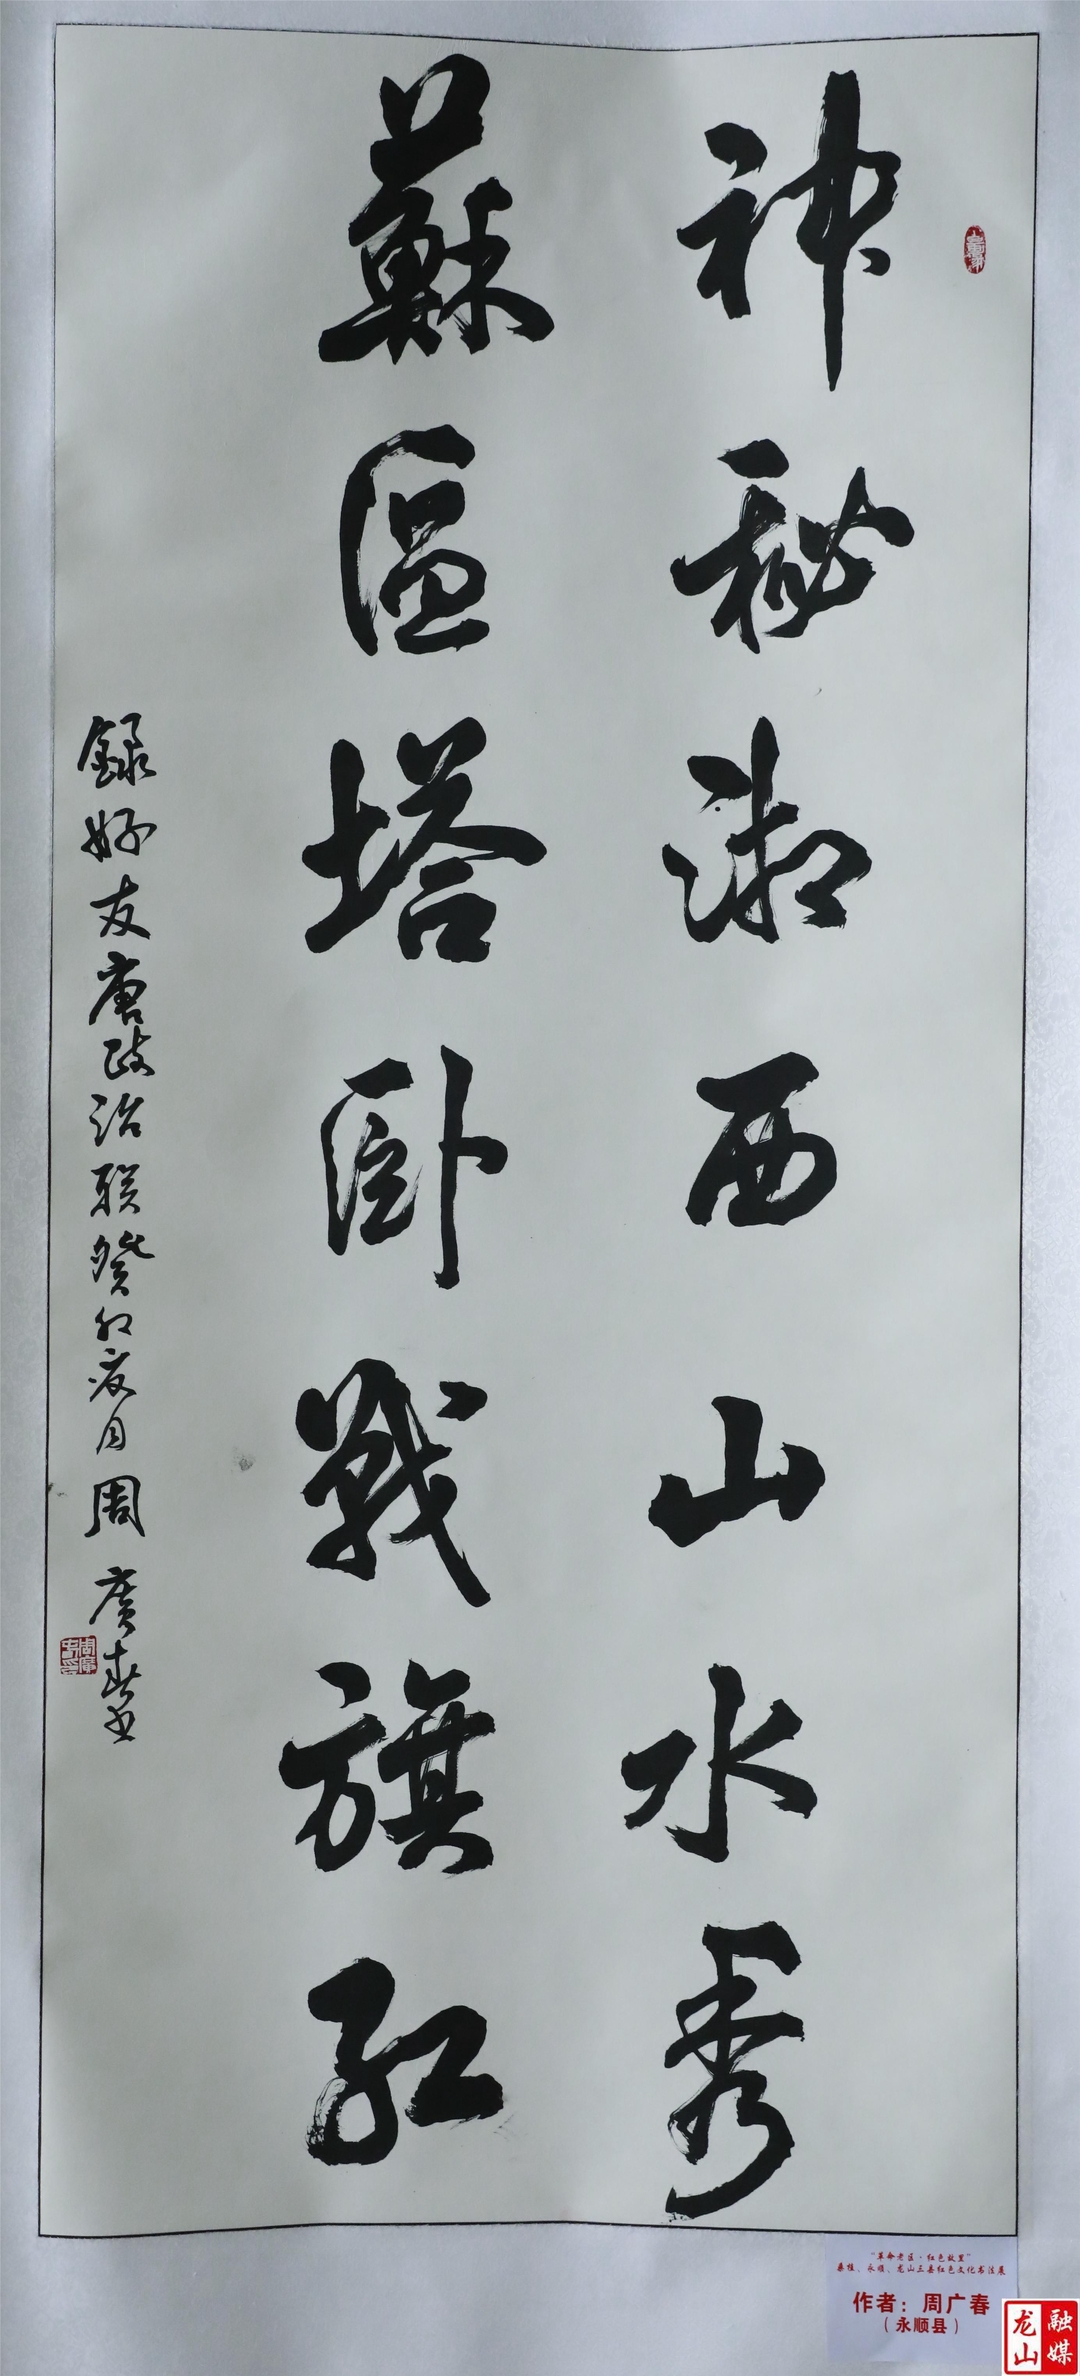 神秘湘西山水秀
蘇區塔卧戰旗紅
録好友唐政治联癸卯夏月周廣春书
“革命老区·红色故里”
桑植、永顺、龙山三县红色文化书法展
作者：周广春
（永顺县）
龙山融媒